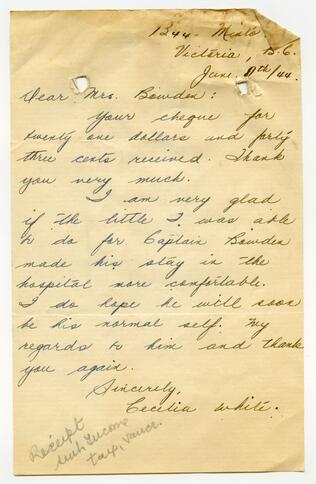 1244 - Minto
Victoria, B.C.
June 11th/44.
Dear Mrs. Bowden:
Your cheque for
twenty one dollars and forty
three cents received. Thank
you very much.
I am very glad
if the little I was able
to do for Captain Bowden
made his stay in the
hospital more comfortable.
I do hope he will soon
be his normal self. My
regards to him and thank
you again.
Sincerely,
Cecilia White.
Receipt
with Income
tax, Vancr.